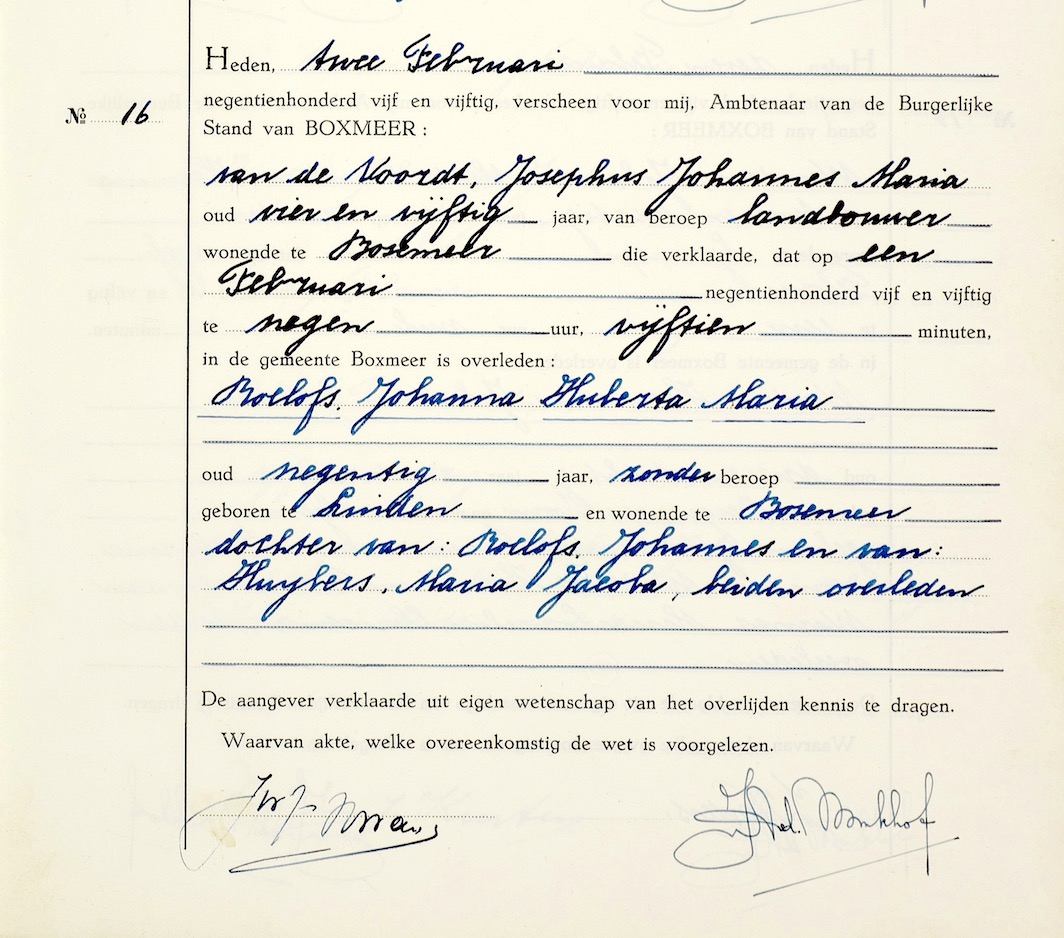 Heden, twee Februari
negentienhonderd vijf en vijftig, verscheen voor mij, Ambtenaar van de Burgerlijke
№ 16
Stand van BOXMEER :
van de Voordt, Josephus Johannes Maria
oud vier en vijftig jaar, van beroep landbouwer
wonende te Boxmeer die verklaarde, dat op een
Februari negentienhonderd vijf en vijftig
te negen uur, vijftien minuten,
in de gemeente Boxmeer is overleden :
Roelofs, Johanna Huberta Maria
oud negentig jaar, zonder beroep
geboren te Linden en wonende te Boxmeer
dochter van : Roelofs, Johannes en van :
Huybers, Maria Jacoba, beiden overleden
De aangever verklaarde uit eigen wetenschap van het overlijden kennis te dragen.
Waarvan akte, welke overeenkomstig de wet is voorgelezen.